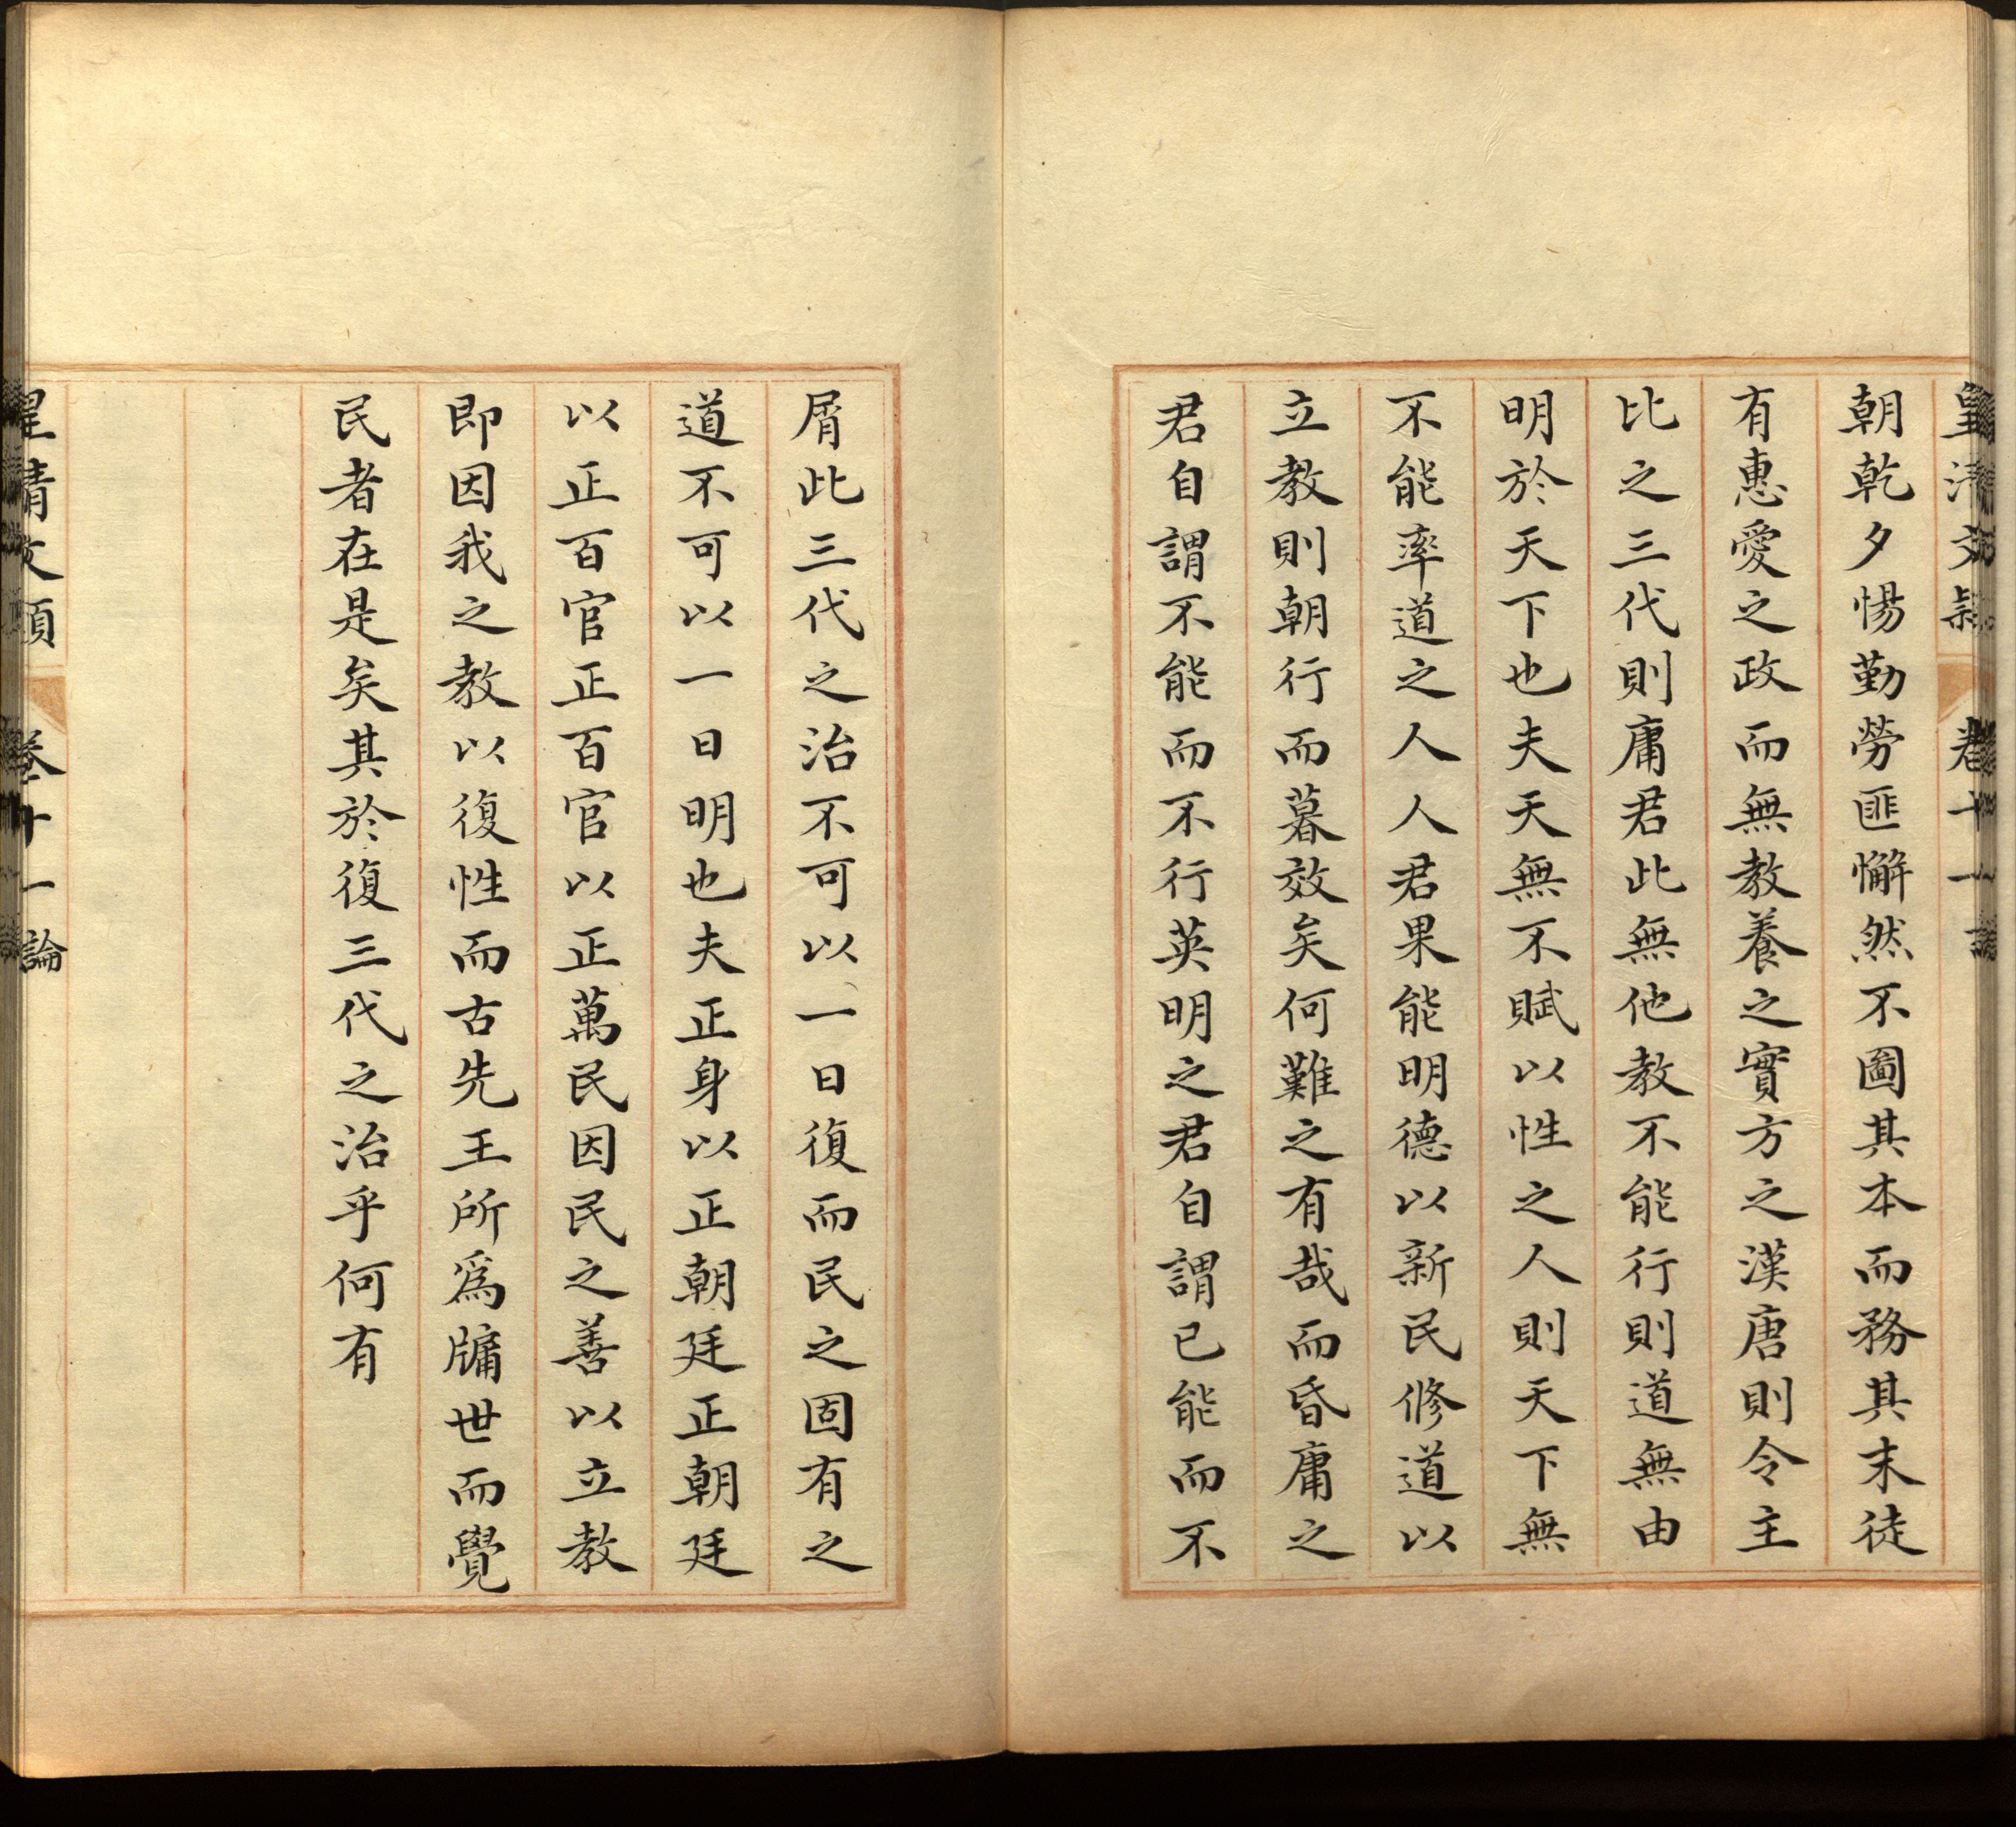 皇清文穎 卷十一 論
朝乾夕惕勤勞匪懈然不圖其本而務其末徒
有惠愛之政而無教養之實方之漢唐則令主
比之三代則庸君此無他教不能行則道無由
明於天下也夫天無不賦以性之人則天下無
不能率道之人人君果能明德以新民修道以
立教則朝行而暮效矣何難之有哉而昏庸之
君自謂不能而不行英明之君自謂已能而不
屑此三代之治不可以一日復而民之固有之
道不可以一日明也夫正身以正朝廷正朝廷
以正百官正百官以正萬民因民之善以立教
即因我之教以復性而古先王所爲牖世而覺
民者在是矣其於復三代之治乎何有
皇清文穎 卷十一 論